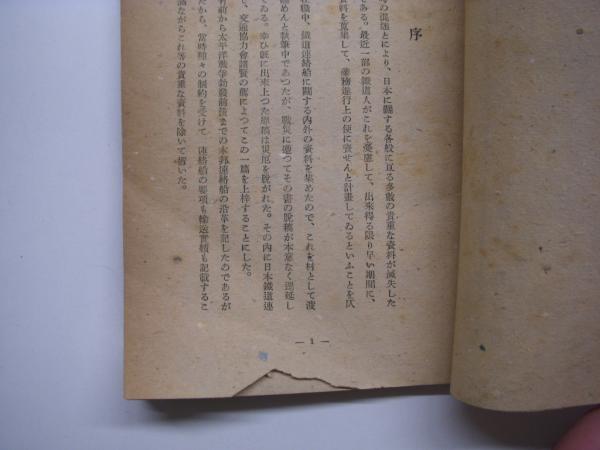 序
の混乱とにより、日本に關する各般に亙る多數の貴重な資料が滅失した
である。最近一部の鐵道人がこれを憂慮して、出來得る限り早い期間に、
資料を蒐集して、業務進行上の便に資せんと計畫してゐるといふことを仄
在職中、鐵道連絡船に關する内外の資料を集めたので、これを材として渡
纏めんと執筆中であつたが、戰災に遭つてその書の脱稿が本意なく遲延し
である。幸ひ既に出來上つた原稿は災厄を脱がれた。その内に日本鐵道連
て、交通協力會諸賢の薦によつてこの一篇を上梓することにした。
前から太平洋戰爭勃發前後までの本邦連絡船の沿革を記したのであるが
だから、當時種々の制約を受けて 連絡船の要項も輸送實績も記載するこ
憾ながらこれ等の貴重な資料を除いて措いた。
— 1 —